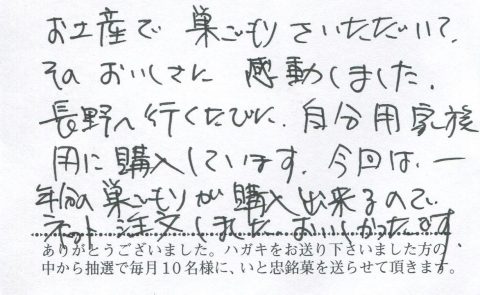 お土産で 巣ごもりをいただいて、
その おいしさに 感動しました。
長野へ行くたびに、自分用 家族
用に購入しています。今回は、一
年分の巣ごもりが購入出来るので
ネット注文しました。おいしかったです。
ありがとうございました。ハガキをお送り下さいました方の
中から抽選で毎月10名様に、いと忠銘菓を送らせて頂きます。